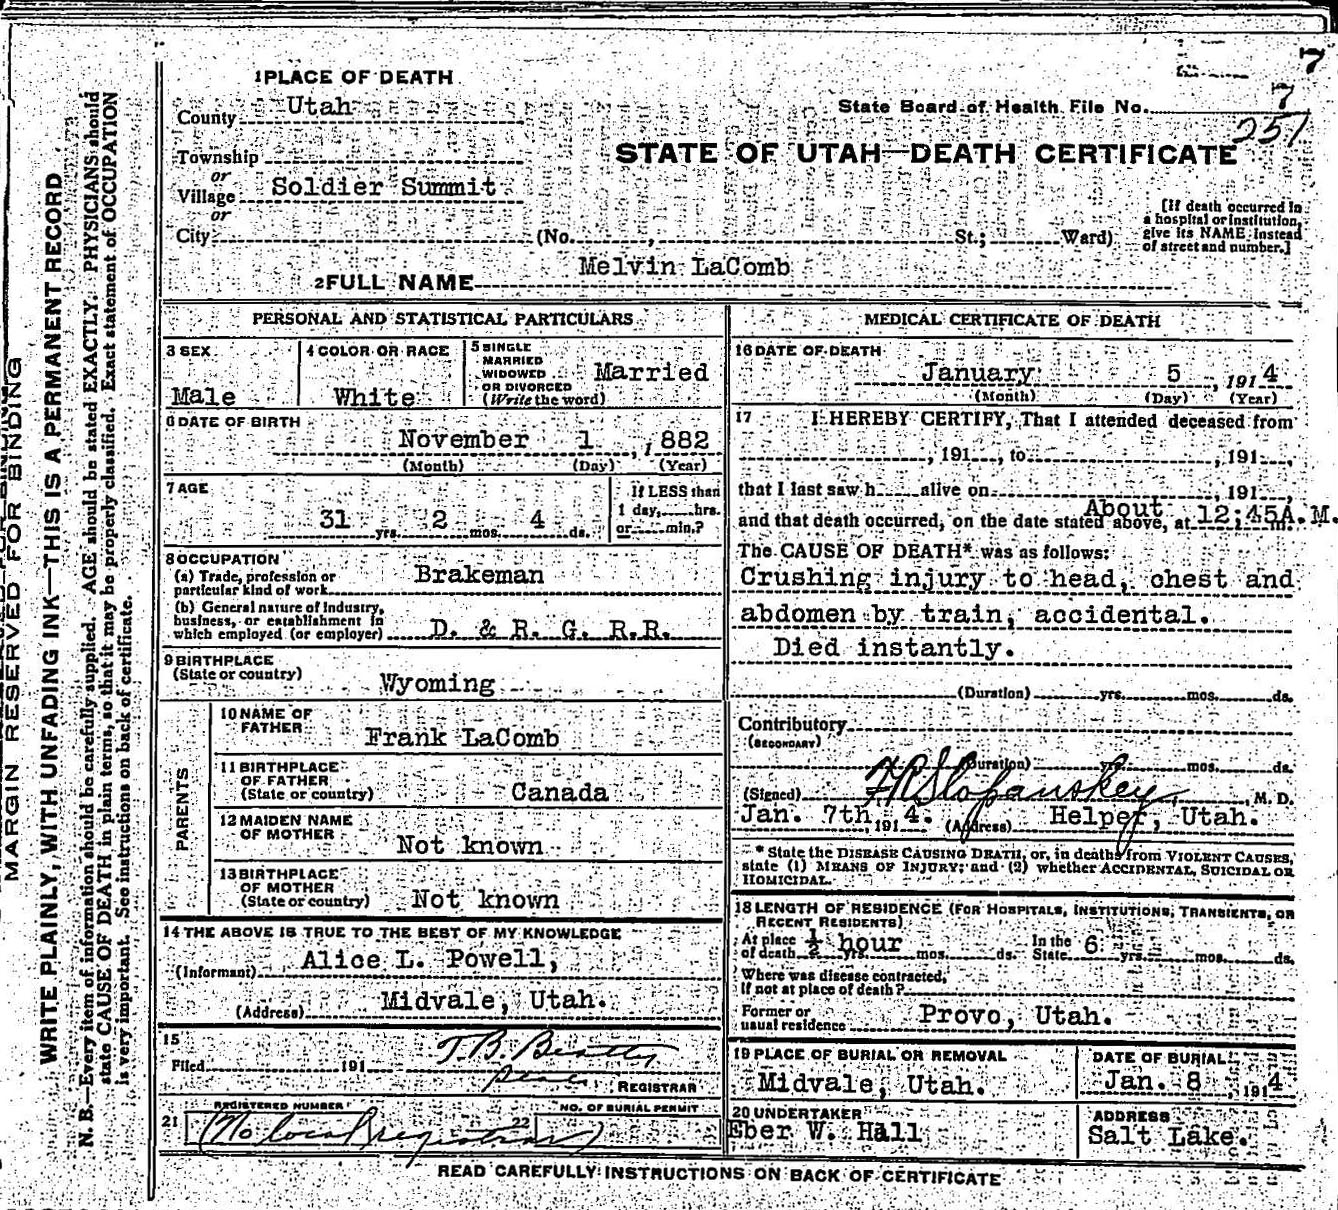 7
1 PLACE OF DEATH
County Utah
State Board of Health File No. 7
251
STATE OF UTAH—DEATH CERTIFICATE
Township
or
Village Soldier Summit
or
City (No. , St.; Ward)
[If death occurred in
a hospital or institution,
give its NAME instead
of street and number.]
2 FULL NAME Melvin LaComb
PERSONAL AND STATISTICAL PARTICULARS
3 SEX
Male
4 COLOR OR RACE
White
5 SINGLE
MARRIED
WIDOWED
OR DIVORCED
(Write the word)
Married
6 DATE OF BIRTH
November 1 , 882
(Month) (Day) (Year)
7 AGE
31 yrs. 2 mos. 4 ds.
If LESS than
1 day, hrs.
or min.?
8 OCCUPATION
(a) Trade, profession or
particular kind of work Brakeman
(b) General nature of Industry,
business, or establishment in
which employed (or employer) D. & R. G. R.R.
9 BIRTHPLACE
(State or country) Wyoming
PARENTS
10 NAME OF
FATHER Frank LaComb
11 BIRTHPLACE
OF FATHER
(State or country) Canada
12 MAIDEN NAME
OF MOTHER Not known
13 BIRTHPLACE
OF MOTHER
(State or country) Not known
14 THE ABOVE IS TRUE TO THE BEST OF MY KNOWLEDGE
(Informant) Alice L. Powell,
(Address) Midvale, Utah.
15
Filed 191 T. B. Beatty
REGISTRAR
21 REGISTERED NUMBER
22 NO. OF BURIAL PERMIT
(No local registrar)
MEDICAL CERTIFICATE OF DEATH
16 DATE OF DEATH
January 5 , 1914
(Month) (Day) (Year)
17 I HEREBY CERTIFY, That I attended deceased from
, 191 , to , 191 ,
that I last saw h alive on , 191 ,
and that death occurred, on the date stated above, at About 12:45A.M. m.
The CAUSE OF DEATH* was as follows:
Crushing injury to head, chest and
abdomen by train, accidental.
Died instantly.
(Duration) yrs. mos. ds.
Contributory
(SECONDARY)
(Duration) yrs. mos. ds.
(Signed) M. D.
Jan. 7th , 191 4. (Address) Helper, Utah.
* State the DISEASE CAUSING DEATH, or, in deaths from VIOLENT CAUSES,
state (1) MEANS OF INJURY; and (2) whether ACCIDENTAL, SUICIDAL OR
HOMICIDAL.
18 LENGTH OF RESIDENCE (FOR HOSPITALS, INSTITUTIONS, TRANSIENTS, OR
RECENT RESIDENTS)
At place
of death ½ hour yrs. mos. ds. In the
State 6 yrs. mos. ds.
Where was disease contracted,
if not at place of death?
Former or
usual residence Provo, Utah.
19 PLACE OF BURIAL OR REMOVAL
Midvale, Utah.
DATE OF BURIAL
Jan. 8 , 1914
20 UNDERTAKER
Eber W. Hall
ADDRESS
Salt Lake.
READ CAREFULLY INSTRUCTIONS ON BACK OF CERTIFICATE
MARGIN RESERVED FOR BINDING
WRITE PLAINLY, WITH UNFADING INK—THIS IS A PERMANENT RECORD
N. B.—Every item of information should be carefully supplied. AGE should be stated EXACTLY. PHYSICIANS should
state CAUSE OF DEATH in plain terms, so that it may be properly classified. Exact statement of OCCUPATION
is very important. See instructions on back of certificate.